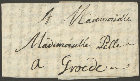 A Mademoiselle
Mademoiselle Pelle
a
Groede